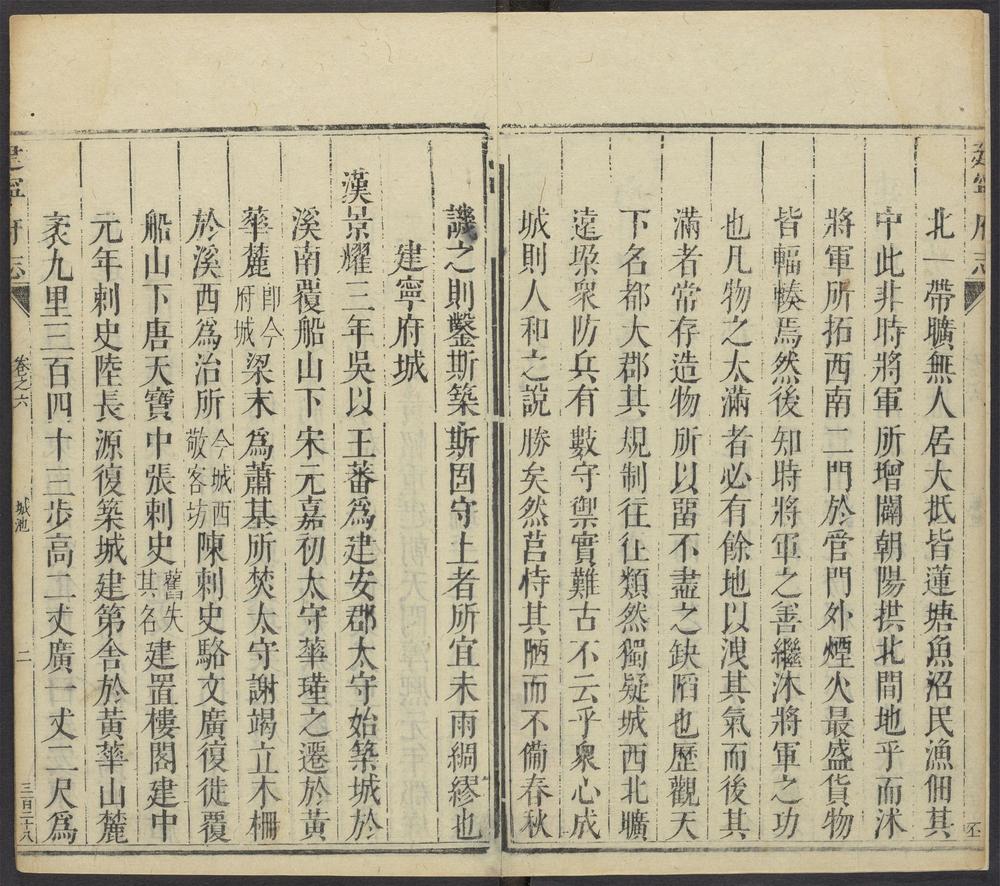 建寧府志
北一帶曠無人居大抵皆蓮塘魚沼民漁佃其
中此非時將軍所增闢朝陽拱北間地乎而沭
將軍所拓西南二門於官門外煙火最盛貨物
皆輻輳焉然後知時將軍之善繼沐將軍之功
也凡物之太滿者必有餘地以洩其氣而後其
滿者常存造物所以畱不盡之缺陷也歷觀天
下名都大郡其規制往往類然獨疑城西北曠
遠眾防兵有數守禦實難古不云乎衆心成
城則人和之說勝矣然莒恃其陋而不僃春秋
譏之則鑿斯築斯固守土者所宜未雨綢繆也
建寧府城
漢景耀三年吳以王蕃爲建安郡太守始築城於
溪南覆船山下宋元嘉初太守華瑾之遷於黃
華麓卽今府城梁末爲蕭基所焚太守謝竭立木柵
於溪西爲治所今城西敬客坊陳刺史駱文廣復徙覆
船山下唐天寶中張刺史舊失其名建置樓閣建中
元年刺史陸長源復築城建第舍於黃華山麓
袤九里三百四十三步高二丈廣一丈二尺爲
建寧府志
卷之六
城池
二
三百三十八